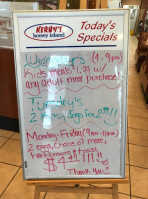 KERBY'S
koney island
Today's
Specials
(4-9pm)
Kids meals 1.99 w/
any adult meal purchase
Tuesday's
2 Koney dogs for
Monday-Friday (9am-11am)
2 eggs, choice of meat,
hashbrowns & toast
$4
Thank You